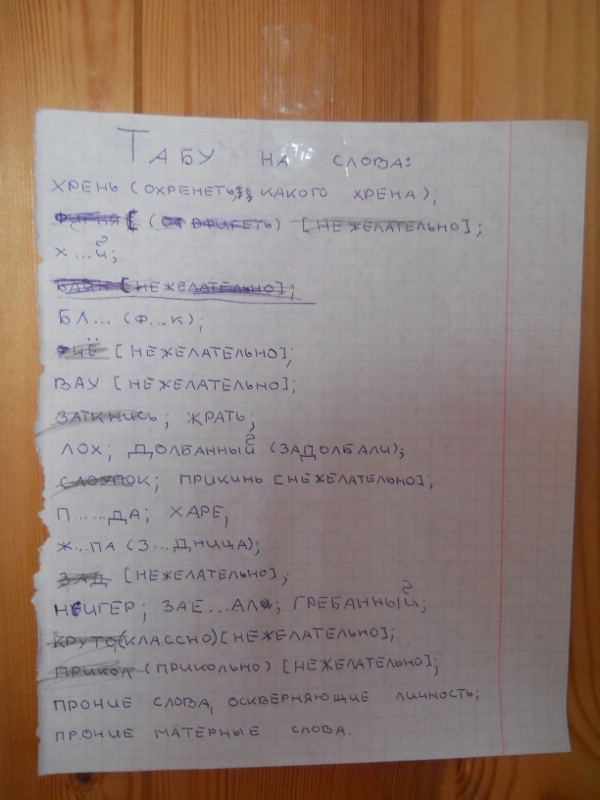 ТАБУ НА СЛОВА:
ХРЕНЬ (ОХРЕНЕТЬ, КАКОГО ХРЕНА);
ФИГНЯ (ОФИГЕТЬ) [НЕЖЕЛАТЕЛЬНО];
Х...Й;
[НЕЖЕЛАТЕЛЬНО];
БЛ... (Ф...К);
[НЕЖЕЛАТЕЛЬНО];
ВАУ [НЕЖЕЛАТЕЛЬНО];
ЗАТКНИСЬ; ЖРАТЬ;
ЛОХ; ДОЛБАННЫЙ (ЗАДОЛБАЛИ);
ПРИКИНЬ [НЕЖЕЛАТЕЛЬНО];
П.....ДА; ХАРЕ;
Ж...ПА (З...ДНИЦА);
ЗАД [НЕЖЕЛАТЕЛЬНО];
НИГЕР; ЗАЕ...АЛ; ГРЕБАННЫЙ;
КРУТО(КЛАССНО)[НЕЖЕЛАТЕЛЬНО];
ПРИКОЛ (ПРИКОЛЬНО) [НЕЖЕЛАТЕЛЬНО];
ПРОЧИЕ СЛОВА, ОСКВЕРНЯЮЩИЕ ЛИЧНОСТЬ;
ПРОЧИЕ МАТЕРНЫЕ СЛОВА.